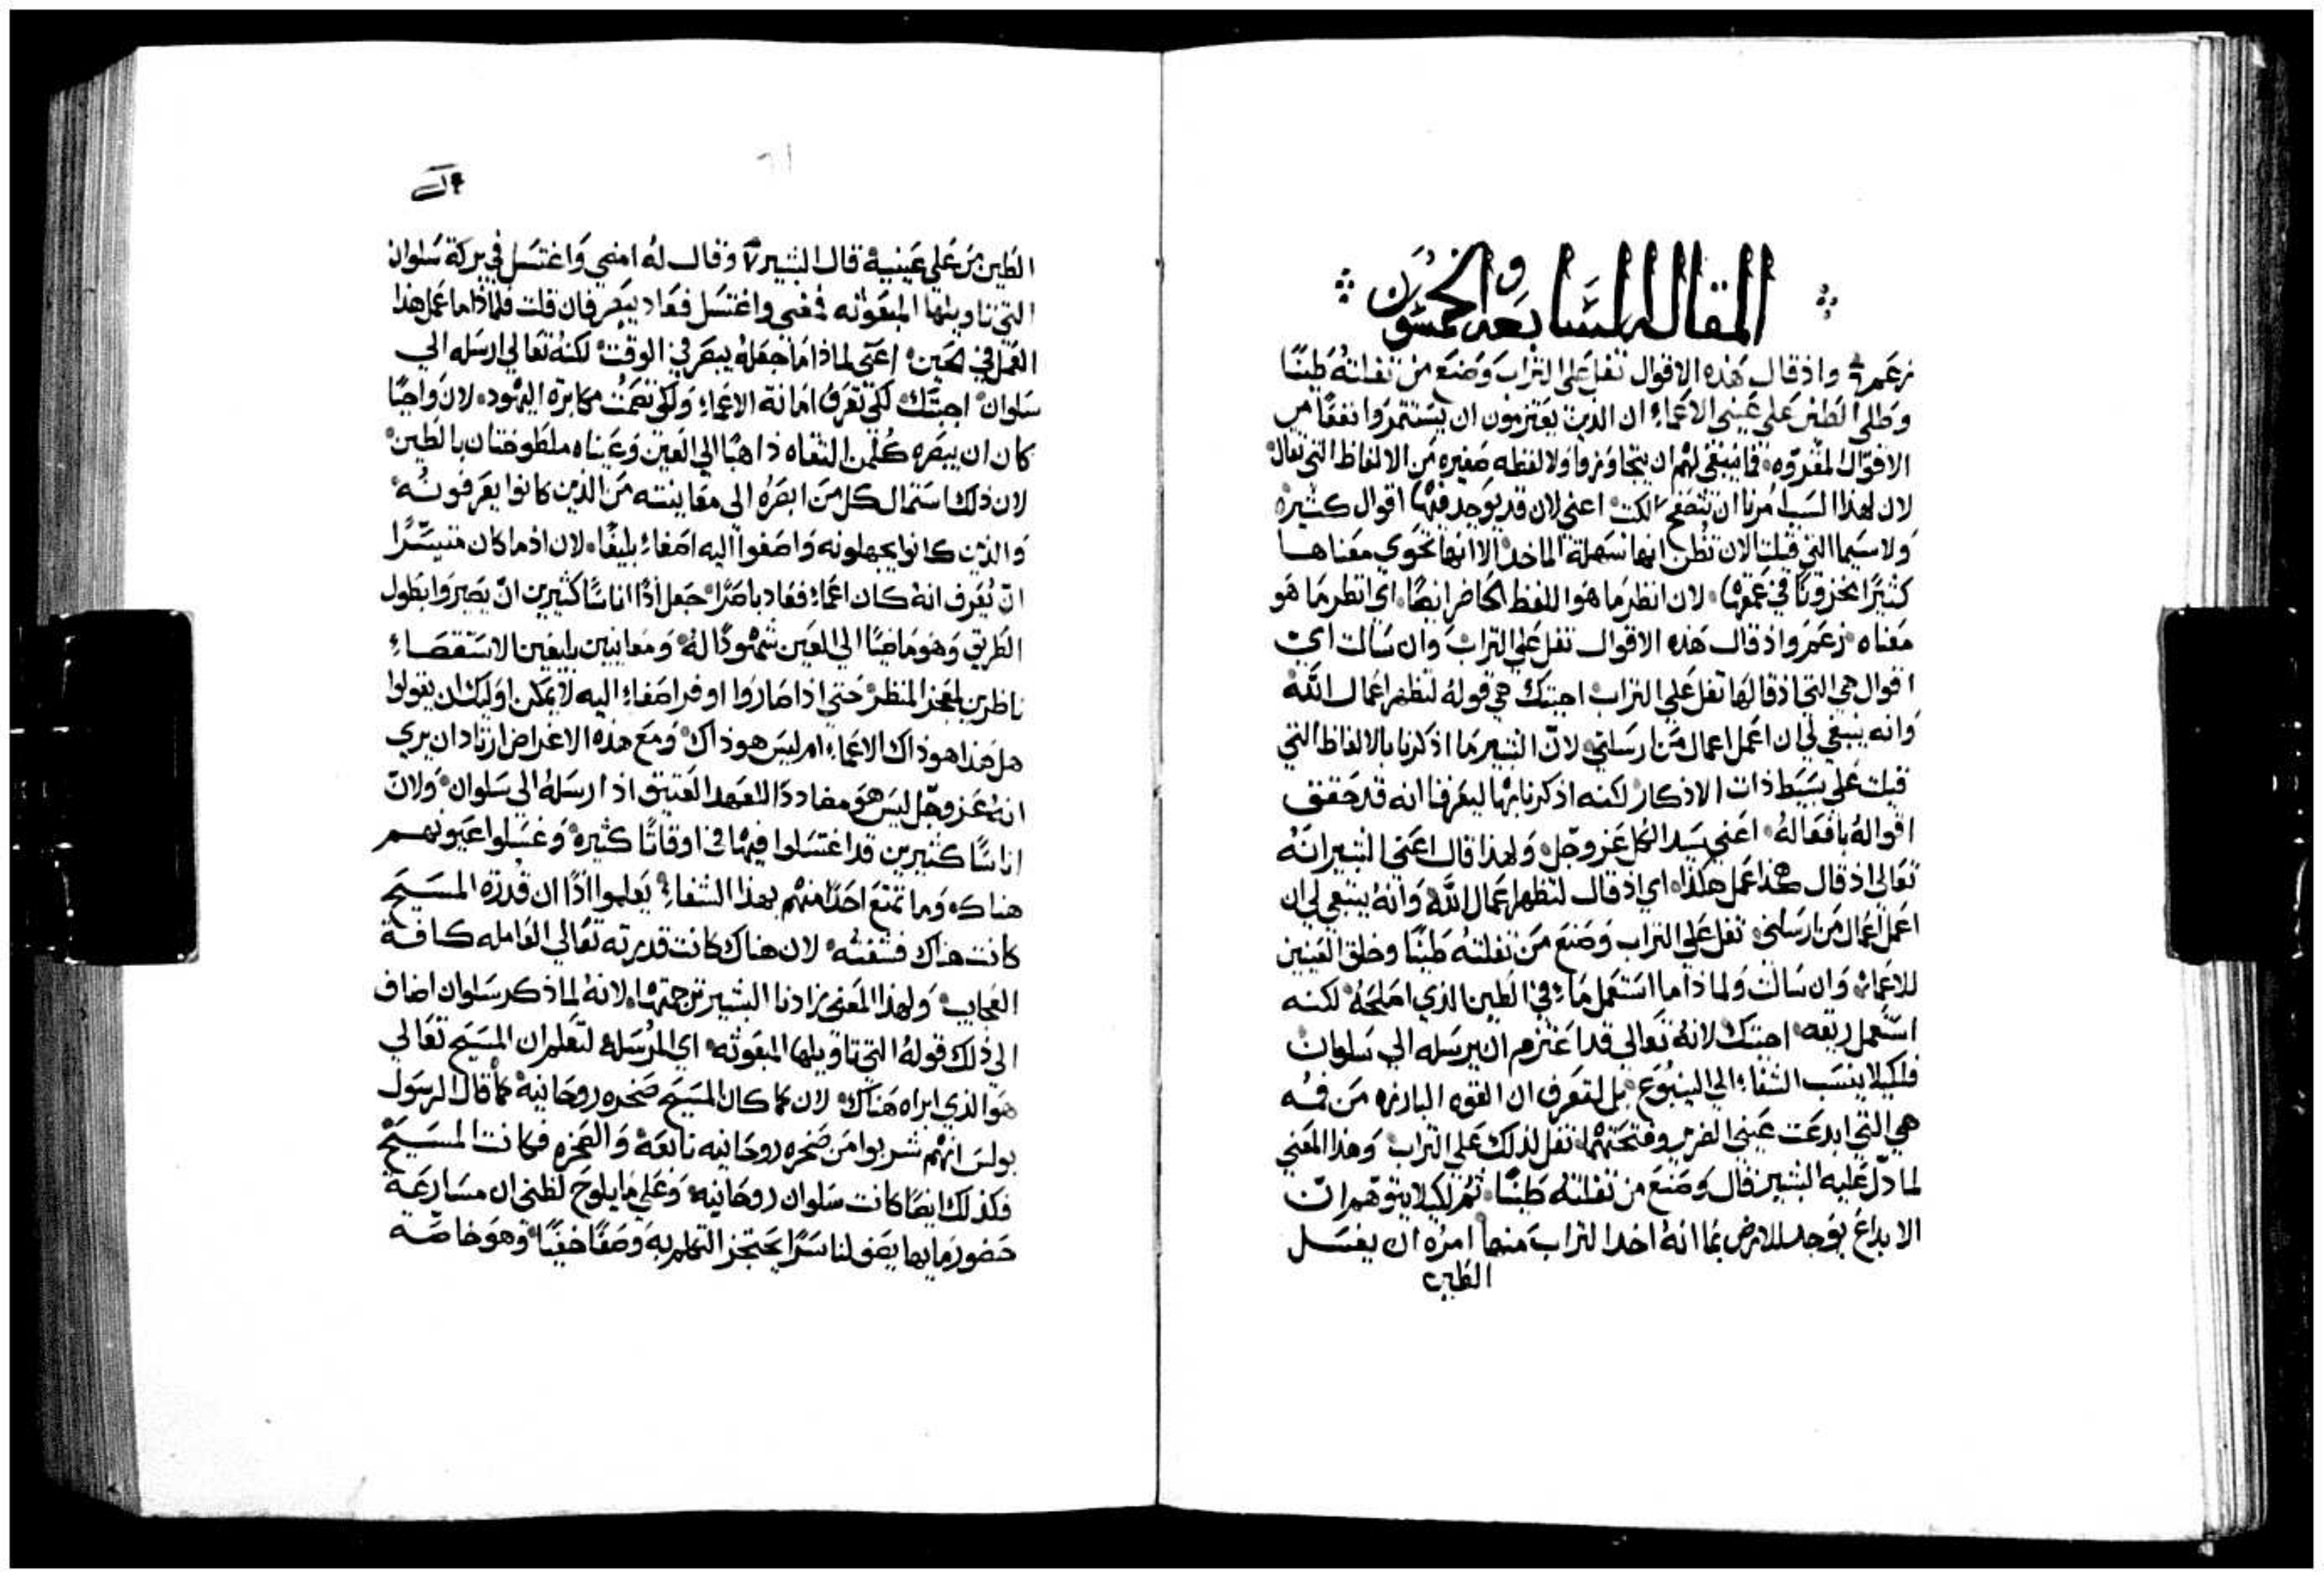 المقاله السابعه والخمسون
زعم واذ قال هذه الاقوال تفل على التراب وصنع من تفلته طينًا
وطلى الطين على عيني الاعماء ان الذين يعتزمون ان يستثمروا نفعًا من
الاقوال المقروه فما ينبغي لهم ان يتجاوزوا ولا لفظه صغيره من الالفاظ التي تقال
لان لهذا السبب امرنا ان نتصفح الكتب اعني لان قد يوجد فيها اقوال كثيره
ولا سيما التي قيلت الان تظن انها سهلة الماخذ الا انها تحوي معناها
كثيرًا مخزونًا في عمقها لان انظر ما هو اللفظ الحاضر ايضًا اي انظر ما هو
معناه زعم واذ قال هذه الاقوال تفل على التراب وان سالت اي
اقوال هي التي اذ قالها تفل على التراب اجبتك هي قوله لتظهر اعمال الله
وانه ينبغي لي ان اعمل اعمال من ارسلني لان البشير ما اذكرنا بالالفاظ التي
قيلت على بسيط ذات الاذكار لكنه اذكرنا بها ليعرفنا انه قد حقق
اقواله بافعاله اعني سيد الكل عز وجل ولهذا قال اعني البشير انه
تعالى اذ قال هذا عمل هكذا اي اذ قال لتظهر اعمال الله وانه ينبغي لي ان
اعمل اعمال من ارسلني تفل على التراب وصنع من تفلته طينًا وخلق العينين
للاعماء وان سالت ولماذا ما استعمل ماء في الطين الذي اصلحه لكنه
استعمل ريقه اجبتك لانه تعالى قد اعتزم ان يرسله الي سلوان
فلكيلا ينسب الشفاء الي الينبوع بل لتعرف ان القوه البارزه من فمه
هي التي ابدعت عيني الضرير وفتحتهما تفل لذلك على التراب وهذا المعني
لما دل عليه البشير قال وصنع من تفلته طينًا ثم لكيلا يتوهم ان
الابداع يوجد للارض بما انه اخذ التراب منها امره ان يغسل
الطين
الطين من على عينيه قال البشير ٧ وقال له امضي واغتسل في بركة سلوان
التي تاويلها المبعوثه فمضي واغتسل فعاد يبصر فان قلت فلماذا ما عمل هذا
العمل في الحين اعني لماذا ما جعله يبصر في الوقت لكنه تعالي ارسله الي
سلوان اجبتك لكي تعرف امانة الاعماء ولكي تصمت مكابرة اليهود لان واجبًا
كان ان يبصره كلمن التقاه ذاهبًا الي العين وعيناه ملطوختان بالطين
لان ذلك استمال كل من ابصره الى معاينته من الذين كانوا يعرفونه
والذين كانوا يجهلونه واصغوا اليه اصغاء بليغًا لان اذ ما كان متيسرًا
ان يعرف انه كان اعماء فعاد باصرًا جعل اذًا اناسًا كثيرين ان يصيروا بطول
الطريق وهو ماضيًا الي العين شهودًا له ومعاينين بليغين الاستقصاء
ناظرين لمعجز المنظر حتي اذا صاروا اوفر اصغاء اليه لا يمكن اوليك ان يقولوا
هل هذا هو ذاك الاعماء ام ليس هو ذاك ومع هذه الاغراض ارتاد ان يري
انه عز وجل ليس هو مضاددًا للعهد العتيق اذ ارسله الي سلوان ولان
اناسًا كثيرين قد اغتسلوا فيها في اوقاتًا كثيره وغسلوا عيونهم
هناك وما تمتع احدًا منهم بهذا الشفاء يعلموا اذًا ان قدرة المسيح
كانت هناك فشفته لان هناك كانت قدرته تعالي العامله كافة
العجايب ولهذا المعنى زادنا البشير ترجمتها لانه لما ذكر سلوان اضاف
الي ذلك قوله التي تاويلها المبعوثه اي المرسله لتعلم ان المسيح تعالي
هو الذي ابراه هناك لان كما كان المسيح صخره روحانية كما قال الرسول
بولس انهم شربوا من صخره روحانيه تابعة والصخره فكانت المسيح
فكذلك ايضًا كانت سلوان روحانيه وعلي ما يلوح لظني ان مسارعة
حضور مايها يصف لنا سرًا يحتجز التكلم به وصفًا خفيًا وهو خاصه